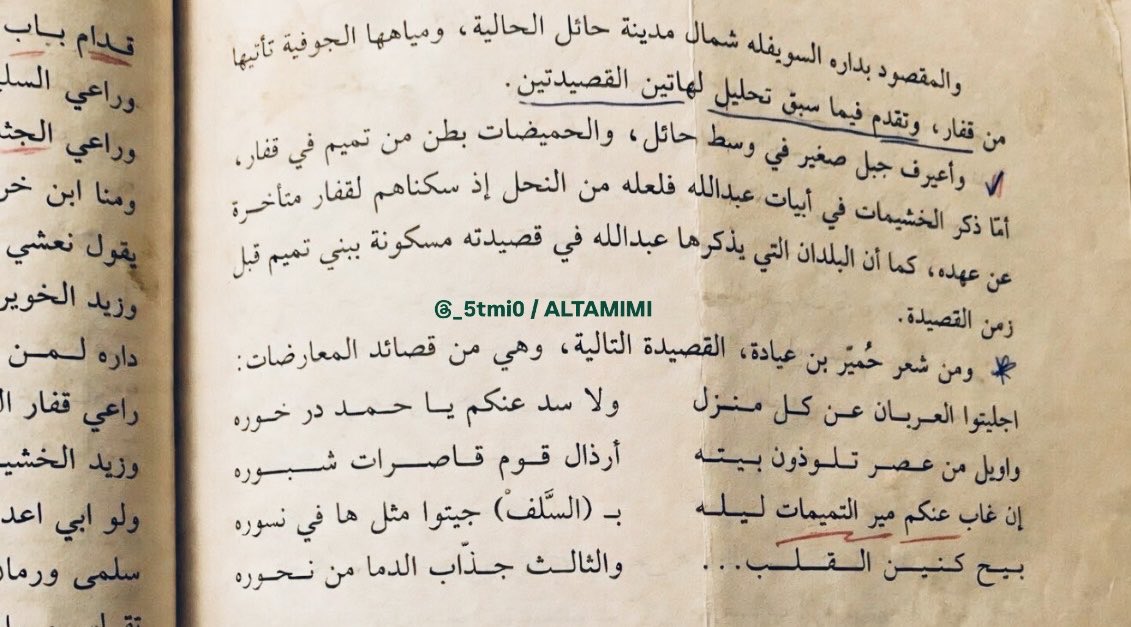 والمقصود بداره السويفله شمال مدينة حائل الحالية، ومياهها الجوفية تأتيها
من قفار، وتقدم فيما سبق تحليل لهاتين القصيدتين.
وأعيرف جبل صغير في وسط حائل، والحميضات بطن من تميم في قفار،
أمّا ذكر الخشيمات في أبيات عبدالله فلعله من النحل إذ سكناهم لقفار متأخرة
عن عهده، كما أن البلدان التي يذكرها عبدالله في قصيدته مسكونة ببني تميم قبل
زمن القصيدة.
@_5tmi0 / ALTAMIMI
ومن شعر حُميّر بن عيادة، القصيدة التالية، وهي من قصائد المعارضات:
اجليتوا العربان عن كل منزل ولا سد عنكم يا حمد در خوره
واويل من عصر تلوذون بيته أرذال قوم قاصرات شبوره
إن غاب عنكم مير التميمات ليله بـ (السَّلفْ) جيتوا مثل ها في نسوره
بيح كنين القلب... والثالث جذّاب الدما من نحوره
قدام باب
وراعي
وراعي
ومنا ابن
يقول نعشي
وزيد
داره لمن
راعي قفار
وزيد
ولو ابي
سلمى